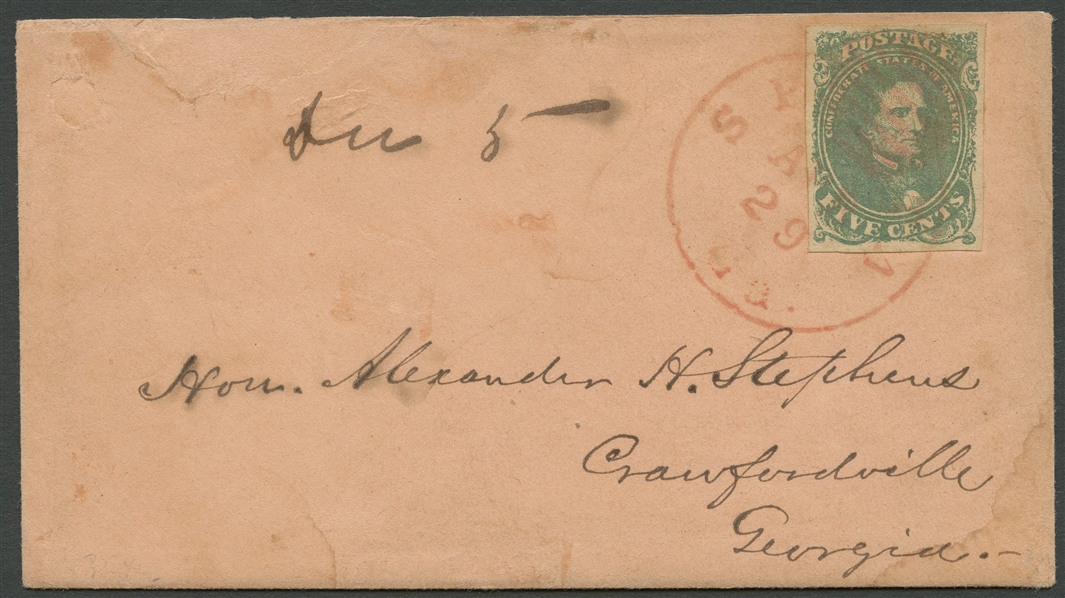 POSTAGE
CONFEDERATE STATES OF AMERICA
FIVE CENTS
Due 5
29
Hon. Alexander H. Stephens
Crawfordville
Georgia.